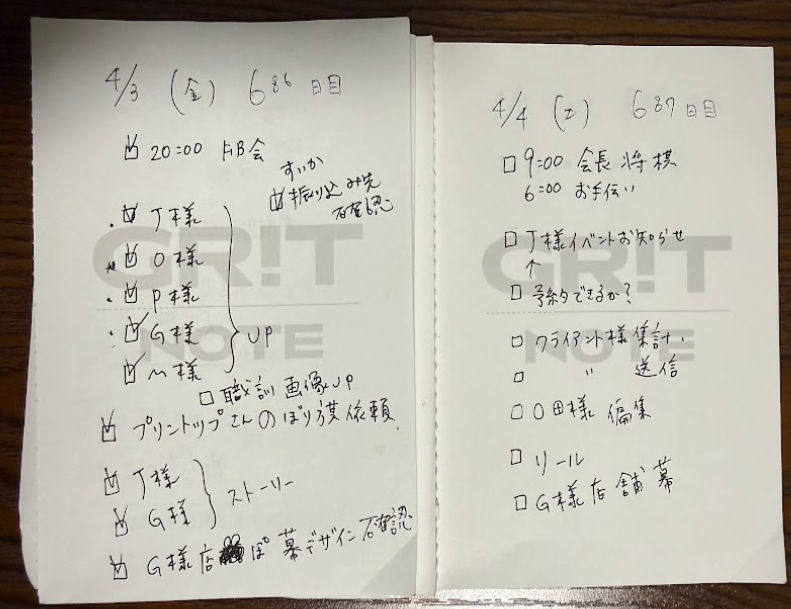 4/3 (金) 686 日目
☑ 20:00 FB会
すいか
☑ 振り込み先
確認
・☑ J様
☑ O様
・☑ P様
・☑ G様
☑ M様
UP
□ 職訓画像UP
☑ プリントップさんのぼり旗依頼
☑ J様
☑ G様
ストーリー
☑ G様店ぽ幕デザイン確認
GR!T
NOTE
4/4 (土) 687 日目
□ 9:00 会長将棋
6:00 お手伝い
□ J様イベントお知らせ
↑
□ 予約できるか?
□ クライアント様集計
□ 〃 送信
□ O田様 編集
□ リール
□ G様店舗幕
GR!T
NOTE